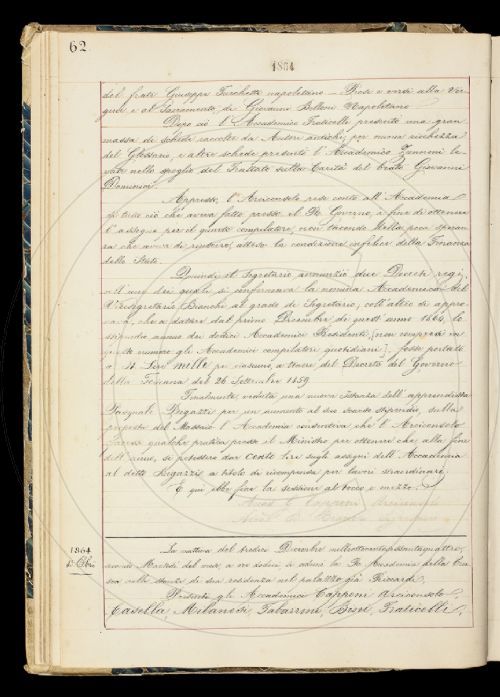 62.
1864
del frate Giuseppe Turchetti napoletano — Prose e versi alla Ver-
gine e al Sacramento, di Giovanni Belloni Napoletano
Dopo ciò l'Accademico Fraticelli presentò una gran
massa di schede raccolte da Autori antichi, per nuova ricchezza
del Glossario e altre schede presentò l'Accademico Zannoni le-
vate nello spoglio del Trattato sulla Carità del Beato Giovanni
Dominici.
Appresso, l'Arciconsolo rese conto all'Accademia
di tutto ciò che aveva fatto presso il R. Governo, a fine di ottenere
l'assegno per il quinto compilatore, non tacendo della poca speran-
za che aveva di riuscirvi, attese le condizioni infelici della Finanza
dello Stato.
Quindi il Segretario annunziò due Decreti regj,
nell'uno dei quali si confermava la nomina Accademica del
V. Segretario Bianchi al grado di Segretario, coll'altro di appro-
va a, che a datare dal primo Dicembre di quest'anno 1864, lo
stipendio annuo dei dodici Accademici Residenti, [non compresi in
questo numero gli Accademici compilatori quotidiani], fosse portato
a It. Lire mille per ciascuno, a tenore del Decreto del Governo
della Toscana del 26 Settembre 1859.
Finalmente, veduta una nuova istanza dell'apprendista
Pasquale Bigazzi per un aumento al suo scarso stipendio, sulla
proposta del Massaio l'Accademia consentiva che l'Arciconsolo
facesse qualche pratica presso il Ministro per ottenere che alla fine
dell'anno, si potessero dar cento lire sugli assegni dell'Accademia
al detto Bigazzi a titolo di ricompensa per lavori straordinarj.
E qui ebbe fine la sessione al tocco e mezzo.
Capponi Arciconsolo
1864
La mattina del tredici Dicembre milleottocentosessantaquattro,
secondo Martedì del mese, a ore dodici si adunò la R. Accademia della Cru-
sca nelle stanze di sua residenza nel palazzo già Riccardi.
Presenti gli Accademici Capponi Arciconsolo,
Casella, Milanesi, Tabarrini, Bini, Fraticelli,